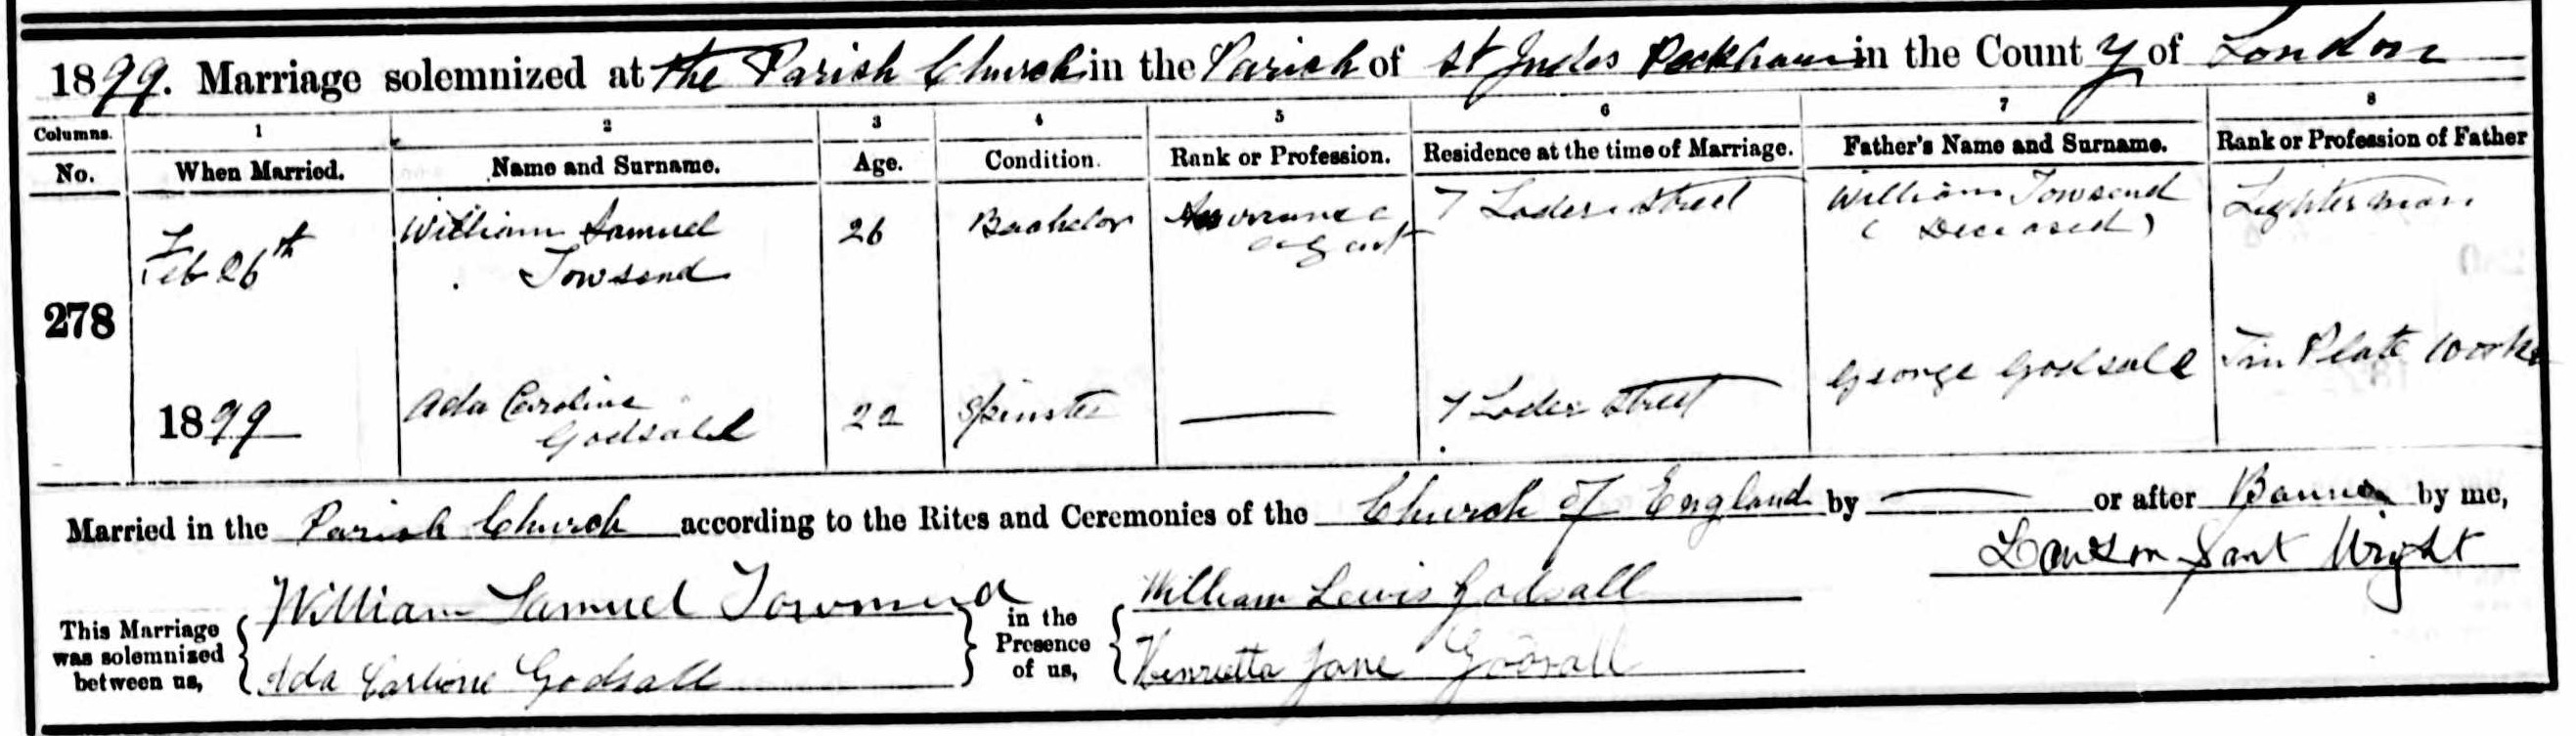 1899. Marriage solemnized at the Parish Church in the Parish of St Judes Peckham in the County of London
Columns. 1 2 3 4 5 6 7 8
No. When Married. Name and Surname. Age. Condition. Rank or Profession. Residence at the time of Marriage. Father's Name and Surname. Rank or Profession of Father
278 Feb 26th 1899 William Samuel Towsend 26 Bachelor Assurance agent 7 Loder Street William Towsend (Deceased) Lighterman
Ada Caroline Godsall 22 Spinster — 7 Loder Street George Godsall Tin Plate Worker
Married in the Parish Church according to the Rites and Ceremonies of the Church of England by — or after Banns by me,
Wright
This Marriage was solemnized between us, { William Samuel Townsend } in the Presence of us, { William Lewis Godsall
Ada Carline Godsall Henrietta Jane Godsall